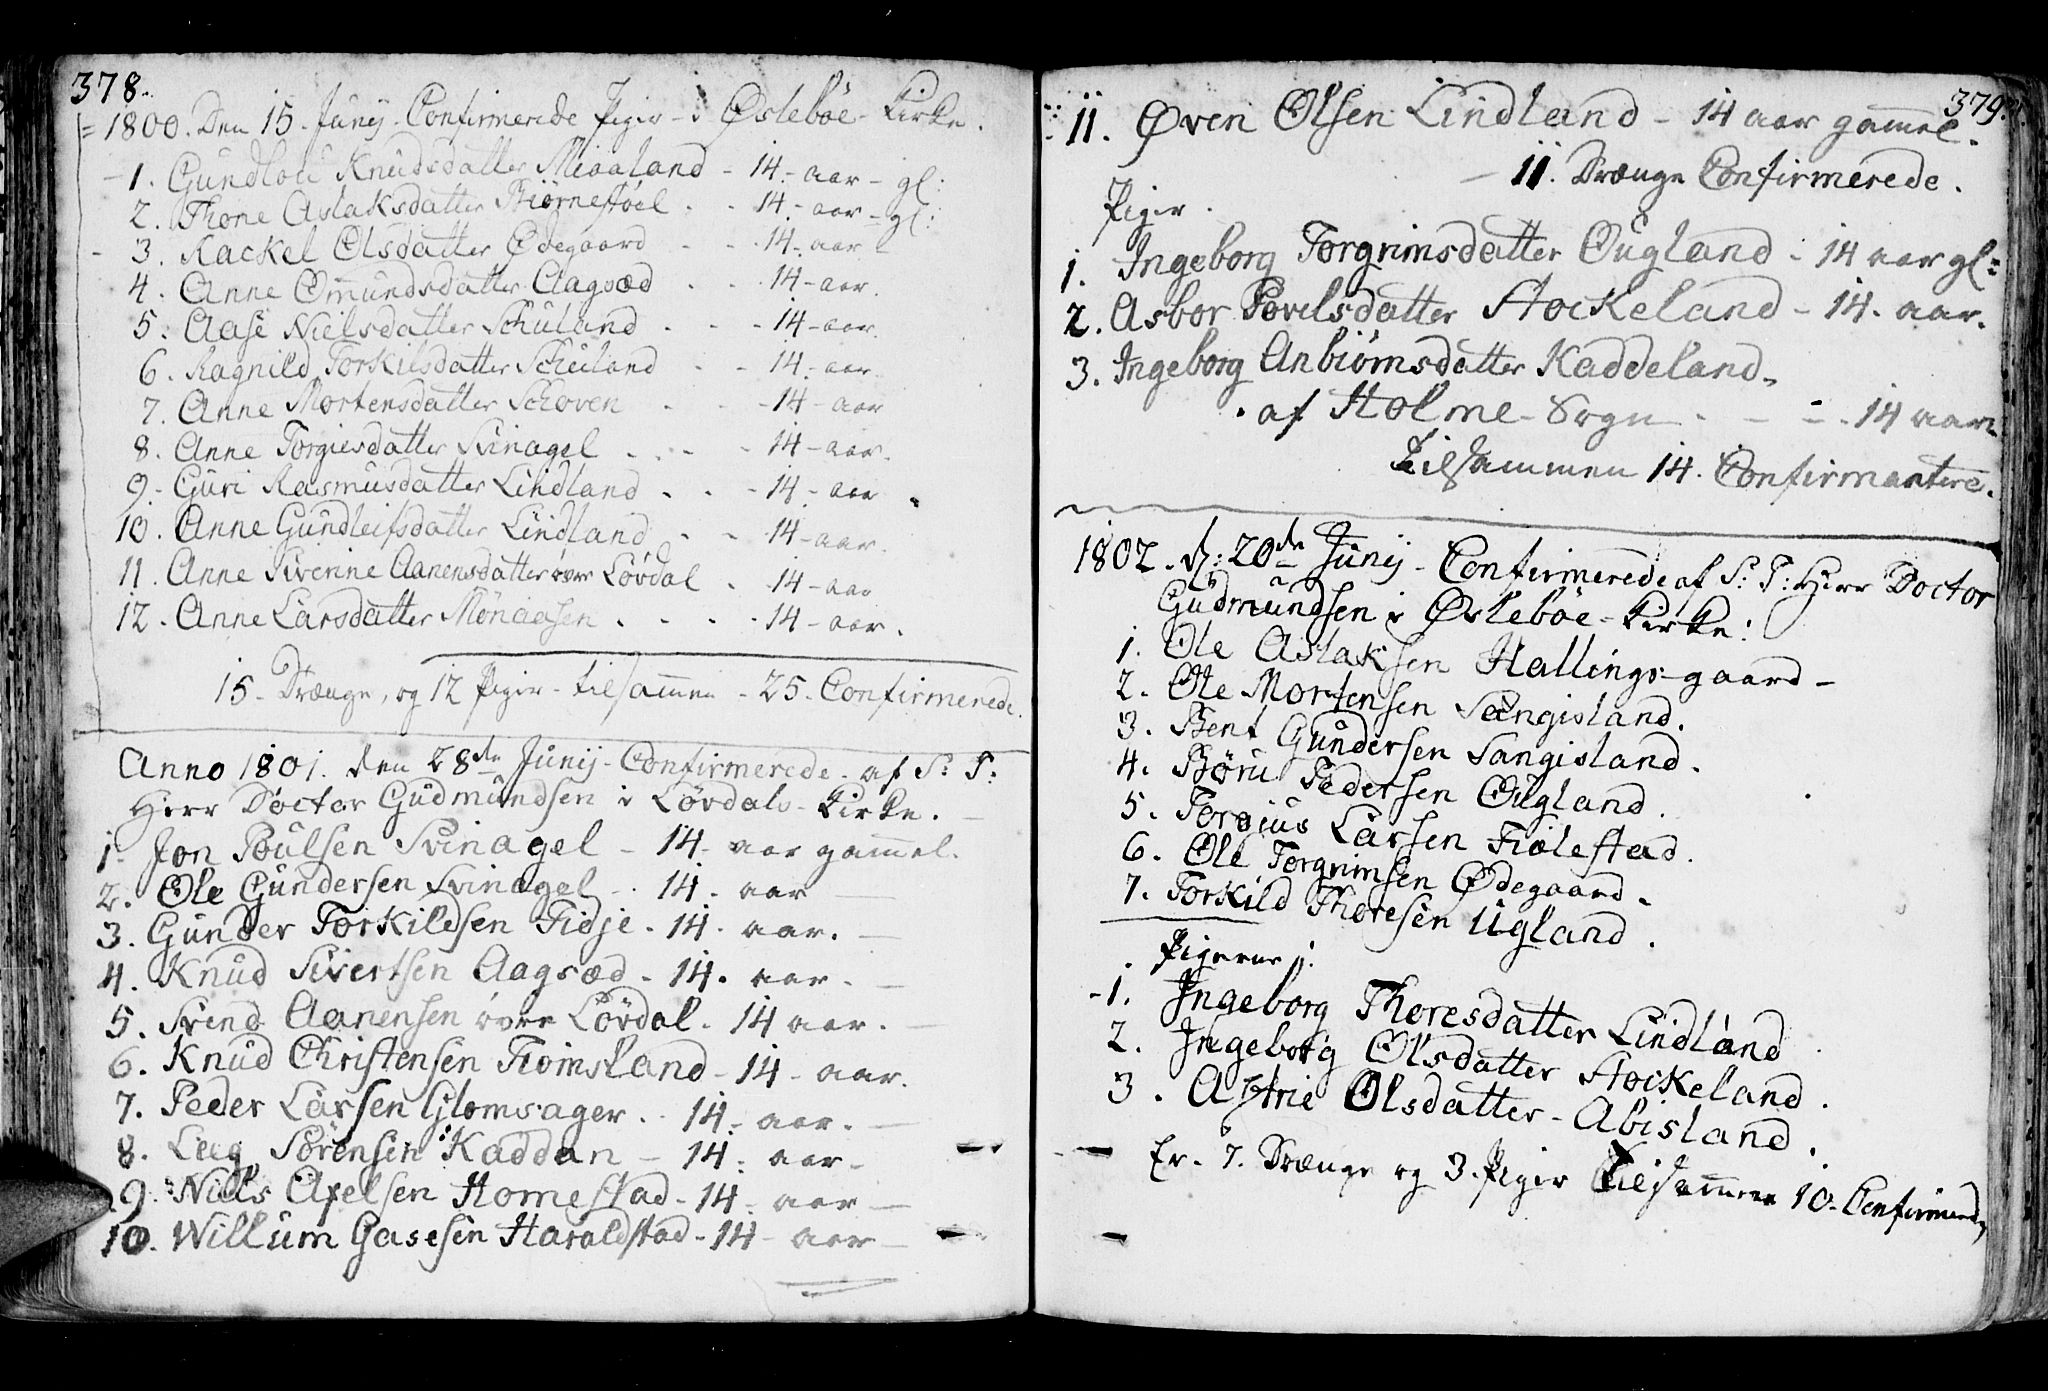 378.
1800. Den 15. Junij Confirmerede Piger i Øslebøe Kirke.
1. Gundlou Knudsdatter Miaaland - 14 - aar - gl:
2. Thone Aslaksdatter Biørnestøel - 14 - aar - gl:
3. Rackel Olsdatter Ødegaard - 14 - aar
4. Anne Omundsdatter Aagsæd - 14 - aar.
5. Aase Nielsdatter Schuland - 14 - aar.
6. Ragnild Torkilsdatter Schuland - 14 - aar.
7. Anne Mortensdatter Schoven - 14 - aar
8. Anne Torgiesdatter Svinagel - 14 - aar.
9. Guri Rasmusdatter Lindland - 14 - aar
10. Anne Gundleifsdatter Lindland - 14 - aar.
11. Anne Siverine Aanensdatter øvre Løvdal - 14 - aar
12. Anne Larsdatter Mønaasen - 14 - aar.
15. Drænge, og 12 Piger - tilsammen - 25. Confirmerede.
Anno 1801. den 28de Junij - Confirmerede af S: P:
Herr Doctor Gudmundsen i Løvdals - Kirke.
1. Jon Poulsen Svinagel - 14 - aar gammel.
2. Ole Gundersen Svinagel - 14. aar
3. Gunder Torkildsen Fidje. 14. aar.
4. Knud Sivertsen Aagsæd - 14. aar.
5. Svend Aanensen øvre Løvdal. 14 aar.
6. Knud Christensen Fiomsland - 14 - aar.
7. Peder Larsen Glomsager. 14. aar.
8. Laug Sørensen Kaddan - 14. aar.
9. Niels Axelsen Homestad - 14. aar
10. Willum Gasesen Haraldstad - 14 - aar
379.
11. Øven Olsen Lindland - 14 aar gammel.
11. Drænge Confirmerede.
Piger.
1. Ingeborg Torgrimsdatter Ougland - 14 aar gl:
2. Asbor Povelsdatter Stockeland - 14. aar.
3. Ingeborg Anbiørnsdatter Kaddeland.
af Holme - Sogn - 14 aar
Tilsammen 14. Confirmantere.
1802. d: 20de Junij - Confirmerede af S: P: Herr Doctor
Gudmundsen i Øslebøe - Kirke:
1. Ole Aslaksen Hallings-gaard -
2. Ole Mortensen Sangisland.
3. Bent Gundersen Sangisland.
4. Børu Pedersen Ougland.
5. Torgius Larsen Fiølestad.
6. Ole Torgrimsen Ødegaard.
7. Torkild Thoresen Ugland.
Pigerne:
1. Ingeborg Thoresdatter Lindland
2. Ingeborg Olsdatter Stockeland.
3. Astrie Olsdatter - Abisland.
Er. 7. Drænge og 3. Piger Tilsammen 10. Confirmerede